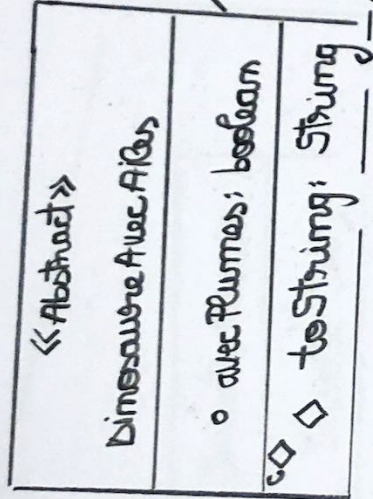 «Abstract»
DinosaureAvecAiles
○ avecPlumes: boolean
c◇ ◇ toString: String